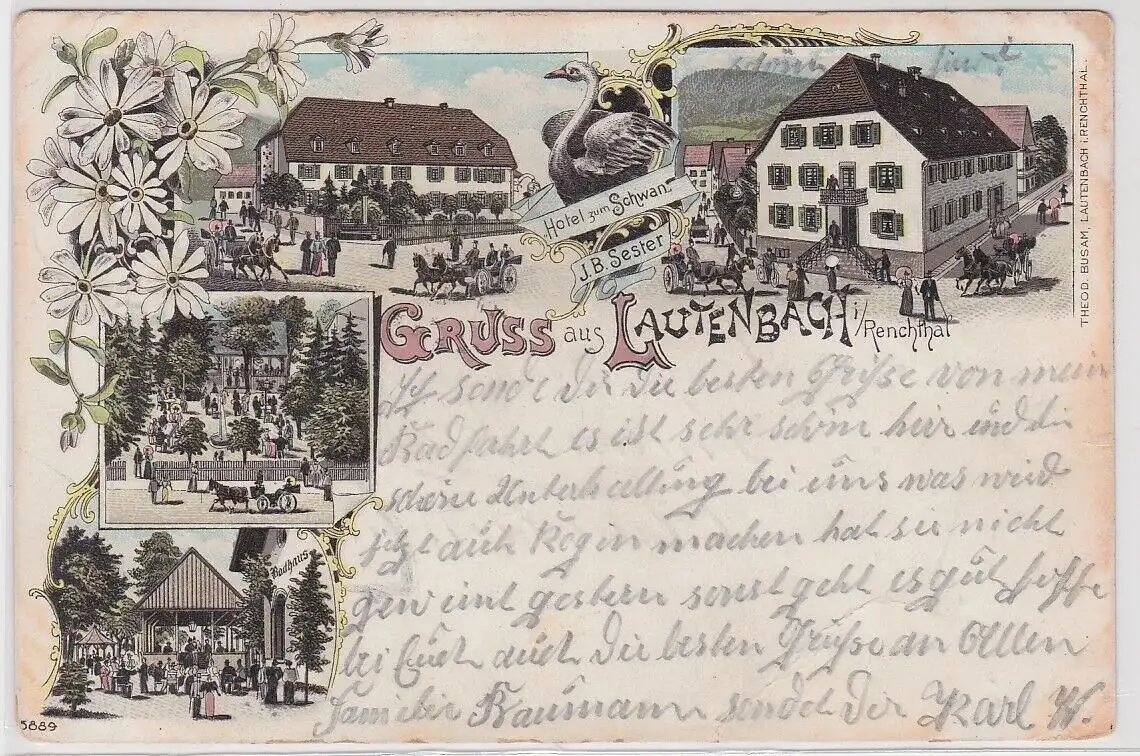 Hotel zum Schwan.
J. B. Sester
GRUSS aus LAUTENBACH i/Renchthal
THEOD. BUSAM, LAUTENBACH i. RENCHTHAL.
Badhaus
5889
Ich sende Dir die besten Grüße von mein
Radfahrt es ist sehr schön hier und die
schöne Unterhaltung bei uns was wird
jetzt auch machen hat sie nicht
geweint gestern sonst geht es gut hoffe
bei Euch auch die besten Grüße an Allen
Familie Baumann sendet Dir Karl W.